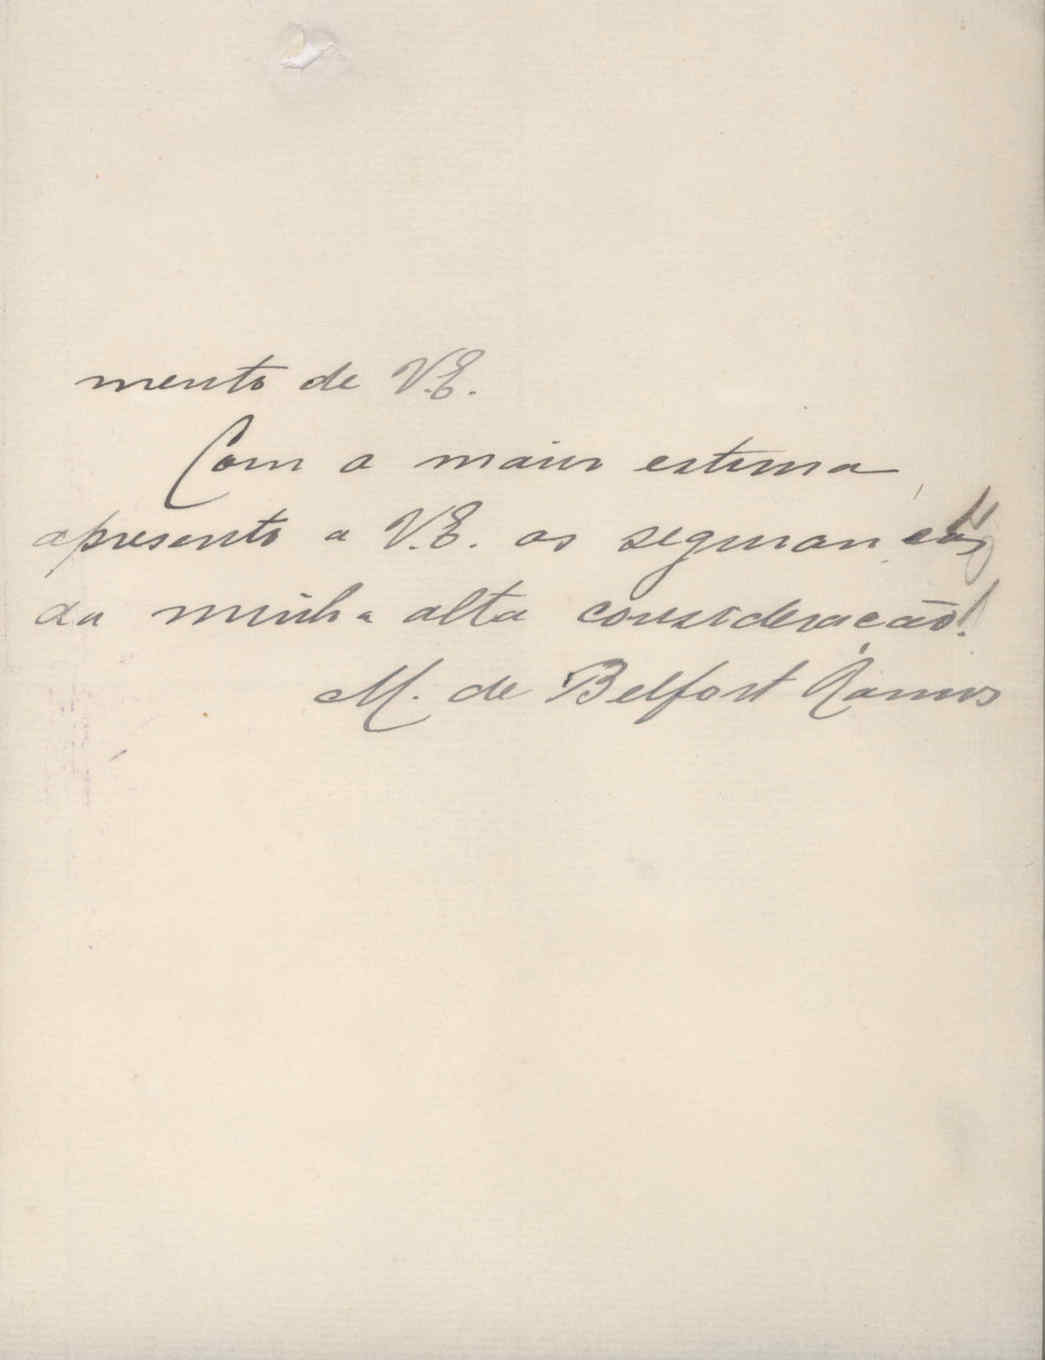 mento de V.E.
Com a maior estima,
apresento a V.E. as seguranças
da minha alta consideração.
M. de Belfort Ramos